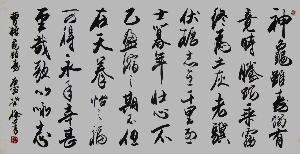 神龜雖壽猶有
竟時騰蛇乘霧
終為土灰老驥
伏櫪志在千里烈
士暮年壯心不
已盈縮之期不但
在天養怡之福
可得永年幸甚
至哉歌以咏志
曹操龜雖壽